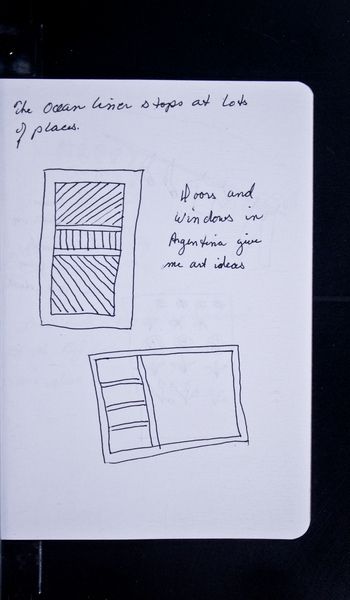 The ocean liner stops at lots
of places.
Doors and
windows in
Argentina give
me art ideas